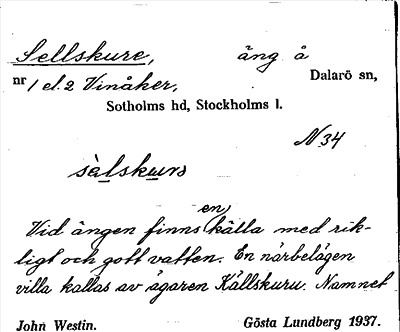 Sellskure, äng å
nr 1 el. 2 Vinåker, Dalarö sn,
Sotholms hd, Stockholms l.
N 34
sälskurs
Vid ängen finns en källa med rik-
ligt och gott vatten. En närbelägen
villa kallas av ägaren Källskuru. Namnet
John Westin. Gösta Lundberg 1937.